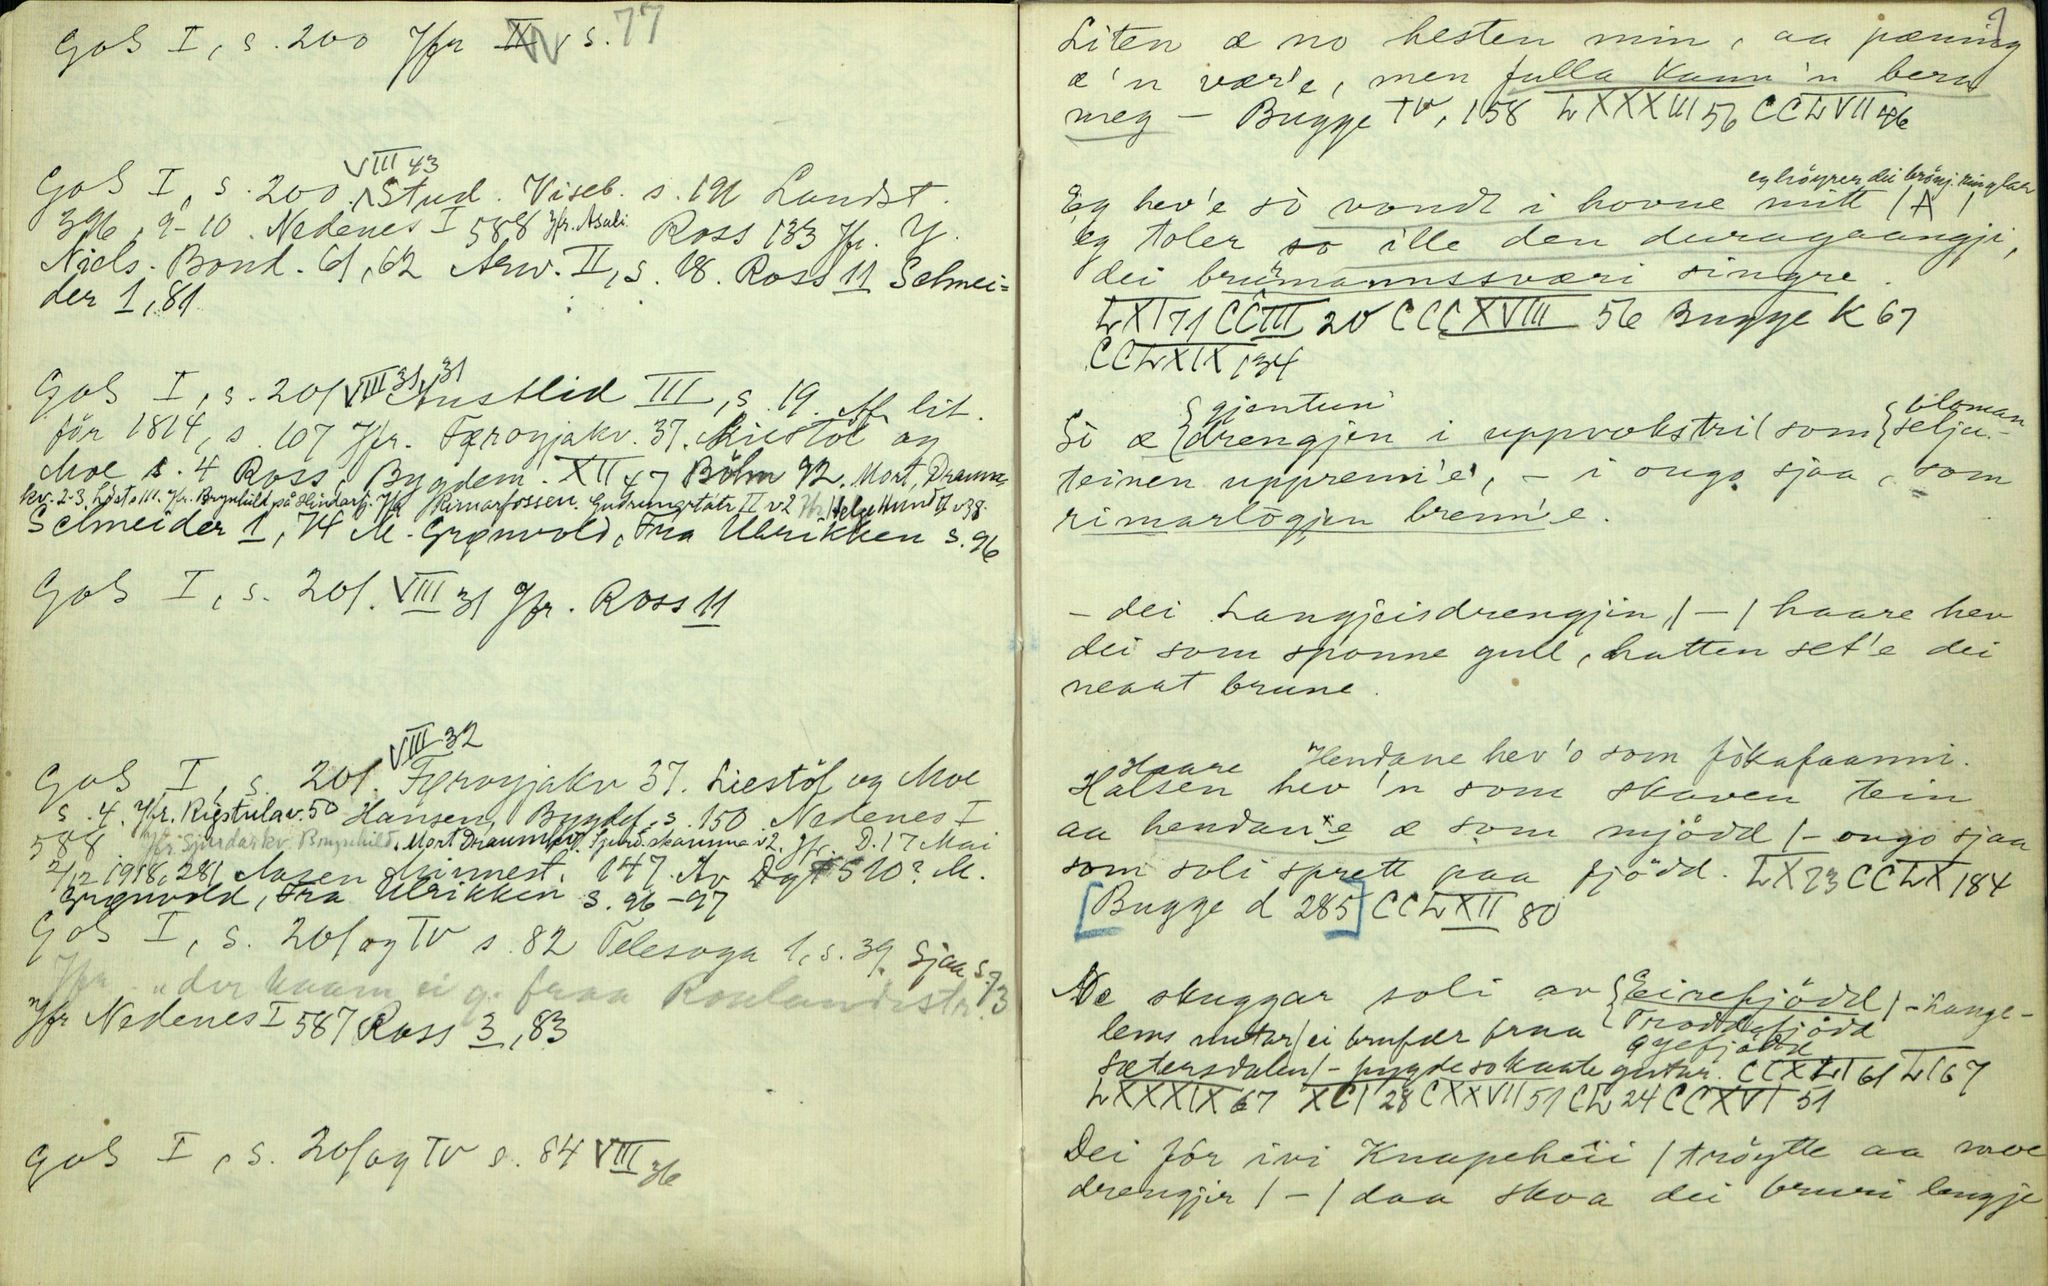 GoS I, s. 200 Jfr IV s. 77
VIII 43
GoS I, s. 200. Stud. Viseb. s. 191 Landst.
396, 9-10. Nedenes I 588 Jfr. Asali Ross 133 Jfr. Y.
Niels. Bond. 61, 62 Arw. II, s. 18. Ross 11 Schnei=
der 1, 81
GoS I, s. 201 VIII 31, 31 Austlid III, s. 19. Nf. lit.
för 1814, s. 107 Jfr. Færoyjakv. 37. Liestöl og
Moe s. 4 Ross, Bygdem. XII 47 Böhm 92. Mort, Draum
kv. 2-3. Jfr. Brynhild på Hindarfj. Jfr Rimarfossen. Gudrunartätr II v2 Helge Hund II v38.
Schneider 1, 74 M. Grønvold, Fra Ulrikken s. 96
GoS I, s. 201. VIII 31 Jfr. Ross 11
VIII 32
GoS I, s. 201. Færoyjakv 37. Liestöl og Moe
s. 4. Jfr. Kvestulav. 50 Hansen, Bygdef. s. 150. Nedenes I
588 Jfr Sjurdarkv. Brynhild. Mort Draumkv. Sjurd. skamma v2. Jfr. D. 17 Mai
2/12 1918, 281 Aasen Minnest. 147. Av Dgf 510? M.
Grønvold, Fra Ulrikken s. 96-97
GoS I, s. 201 og IV s. 82 Telesoga 1, s. 39. Sjaa s. 93
Jfr. "der kaam ei g. fraa Roulandsstr.
Jfr Nedenes I 587 Ross 3, 83
GoS I, s. 201 og IV s. 84 VIII 36
Liten æ no hesten min, aa pænning
æ'n vær'e, men fulla kann'n bera
meg - Bugge IV, 158 LXXXIII 56 CCLVII 46
eg höyrer dei brönj. ringlar
Eg hev'e so vondt i hovne mitt / A /
eg toler so ille den duragaangji,
dei brurmannssværi singre.
LXI 71 CCIII 20 CCCXVIII 56 Bugge K 67
CCLXIX 134
So æ { gjentun / drengjen i uppvokstri / som { bloman / selju-
teinen upprenn'e, - i ongo sjaa, som
rimarlogjen brenn'e.
- dei Langjeisdrengjin, / - / haare hev
dei som sponne gull, hatten set'e dei
neaat brune.
Haare Hendane hev'o som fokafaanni.
Halsen hev'n som skaven tein
aa hendan'e æ som mjödd / - ongo sjaa
som soli sprett paa fjödd. LX 73 CCLX 184
[Bugge d 285] CCLXII 80
No skuggar soli av { Eirefjödd / - Lange-
lems nutar / ei brufær fraa { Troddefjödd
Øyefjödd
sætersdalen / - bygde so kaate gutar. CCXLI 61 LI 67
LXXXIX 67 XCI 28 CXXVII 51 CL 24 CCXVI 51
Dei för ivi Knapeheii / tröytte aa moe
drengjir / - / daa skoa dei bruri lengje